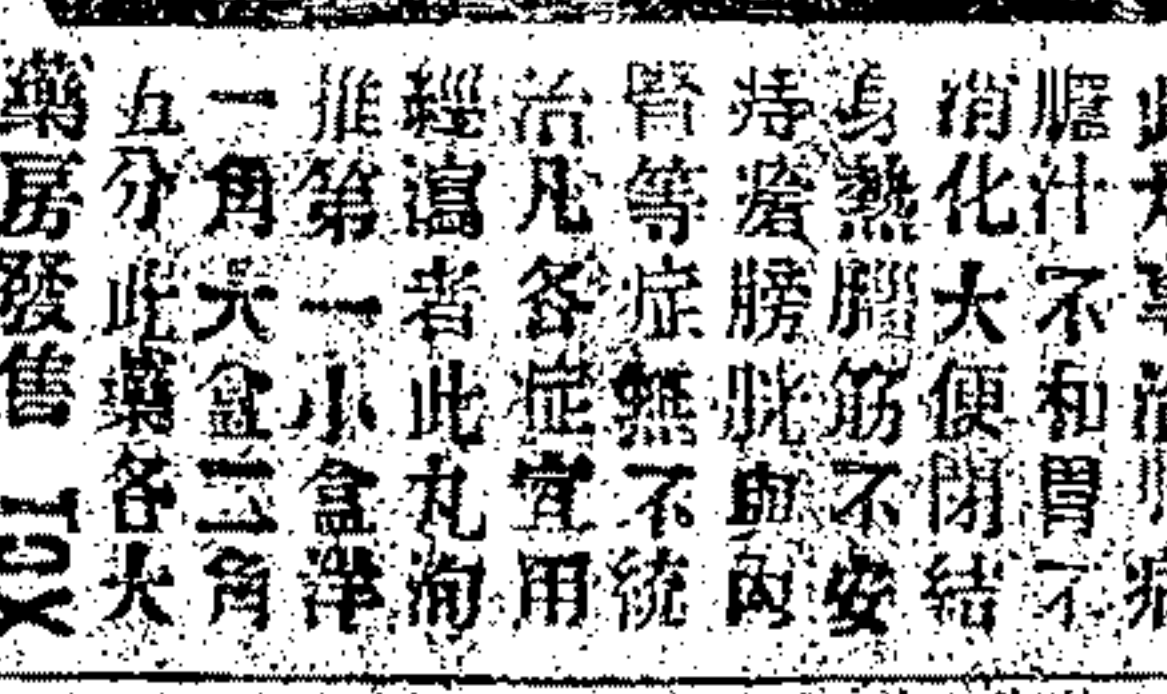 膽汁不和胃不
消化大便閉結
身熱腦筋不安
痔瘡膀胱卽內
腎等症無不統
治凡各症宜用
經瀉者此丸洵
推第一小盒洋
一角大盒三角
五分此藥各大
藥房發售